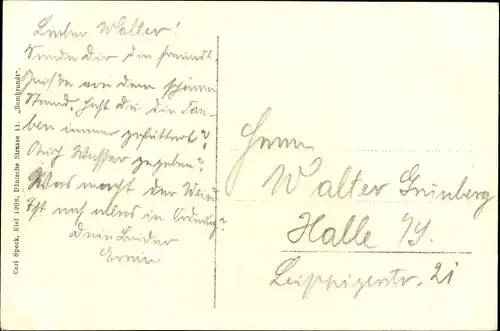 Lieber Walter!
Sende Dir die freundl.
Grüße von dem schönen
Strand. Hast du die Tau-
ben immer gefüttert?
Auch Wasser gegeben?
Was macht der
Ist noch alles in Ordnung?
Dein Bruder
Erwin
Herrn
Walter Grünberg
Halle a/S.
Leipzigerstr. 21
Carl Speck, Kiel 1908, Dänische Strasse 11. „Rembrandt".